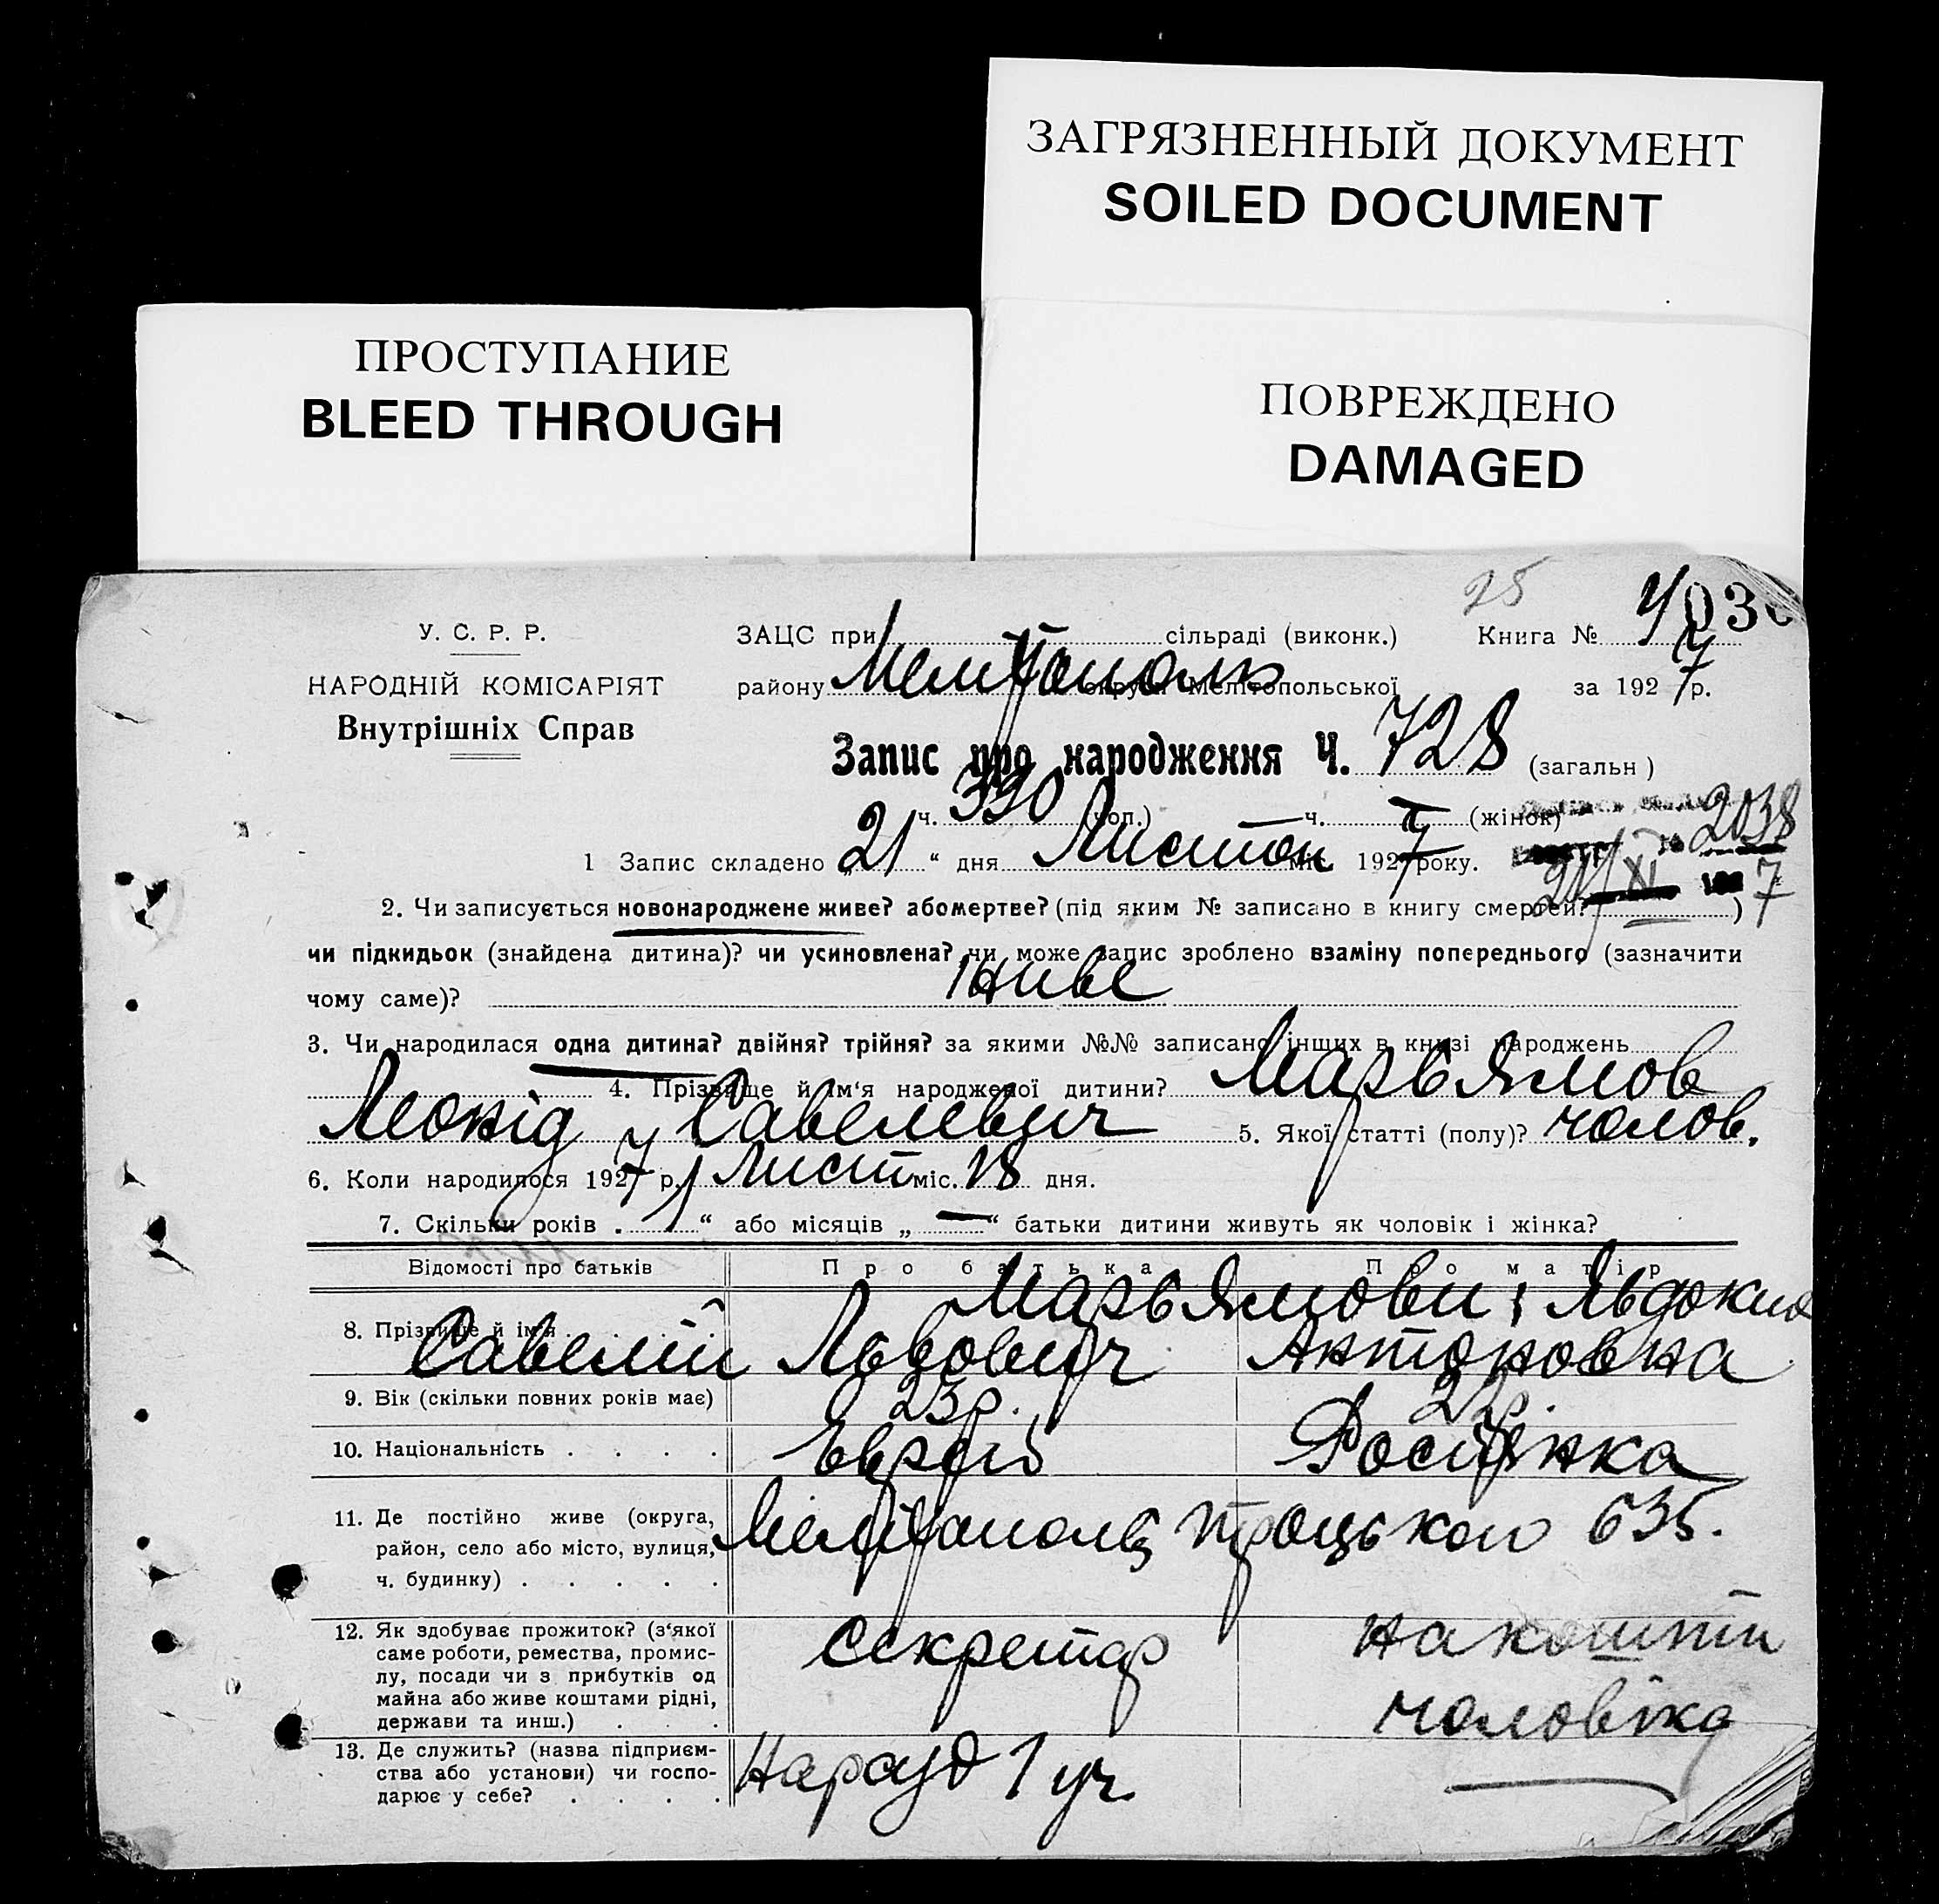 ЗАГРЯЗНЕННЫЙ ДОКУМЕНТ
SOILED DOCUMENT
ПРОСТУПАНИЕ
BLEED THROUGH
ПОВРЕЖДЕНО
DAMAGED
25
У. С. Р. Р.
НАРОДНІЙ КОМІСАРІЯТ
Внутрішніх Справ
ЗАЦС при сільраді (виконк.) Книга №
району Мелітополь округи Мелітопольської за 1927 р.
Запис про народження Ч. 728 (загальн)
ч. 390 (чол.) ч. — (жінок)
2038
1 Запис складено „21“ дня Листоп міс. 1927 року.
21/XI 7
2. Чи записується новонароджене живе? або мертве? (під яким № записано в книгу смертей? )
чи підкидьок (знайдена дитина)? чи усиновлена? чи може запис зроблено взаміну попереднього (зазначити
чому саме)? Живе
3. Чи народилася одна дитина? двійня? трійня? за якими №№ записано інших в книзі народжень
4. Прізвище й ім‘я народженої дитини? Марьямов
Леонід Савелевич 5. Якої статті (полу)? чолов.
6. Коли народилося 1927 р. Лист міс. 18 дня.
7. Скільки років . 1 “ або місяців „ — “ батьки дитини живуть як чоловік і жінка?
Відомості про батьків Про батька Про матір
Марьямови
8. Прізвище й ім‘я . . . . . Савелій Львович Антоновна
9. Вік (скільки повних років має) 23 р. 22 р.
10. Національність . . . . Еврей Росіянка
11. Де постійно живе (округа,
район, село або місто, вулиця,
ч. будинку) . . . . .
Мелітополь Троцького 635.
12. Як здобуває прожиток? (з‘якої
саме роботи, ремества, промис-
лу, посади чи з прибутків од
майна або живе коштами рідні,
держави та инш.) . . .
секретар
на кошти
чоловіка
13. Де служить? (назва підприєм-
ства або установи) чи госпо-
дарює у себе? . . . .
Нарсуд 1 уч.